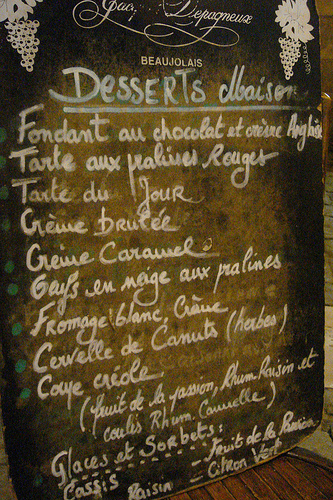 Jac. Depagneux
BEAUJOLAIS
Desserts Maison
Fondant au chocolat et crème Anglaise
Tarte aux pralines Rouges
Tarte du Jour
Crème Brulée
Creme Caramel
Oeufs en neige aux pralines
Fromage blanc, Crème
Cervelle de Canuts (herbes)
Coupe créole.
(fruit de la passion, Rhum-Raisin et
coulis Rhum. Cannelle)
Glaces et Sorbets:
Cassis - Fruit de la Passion
Raisin - Citron Vert